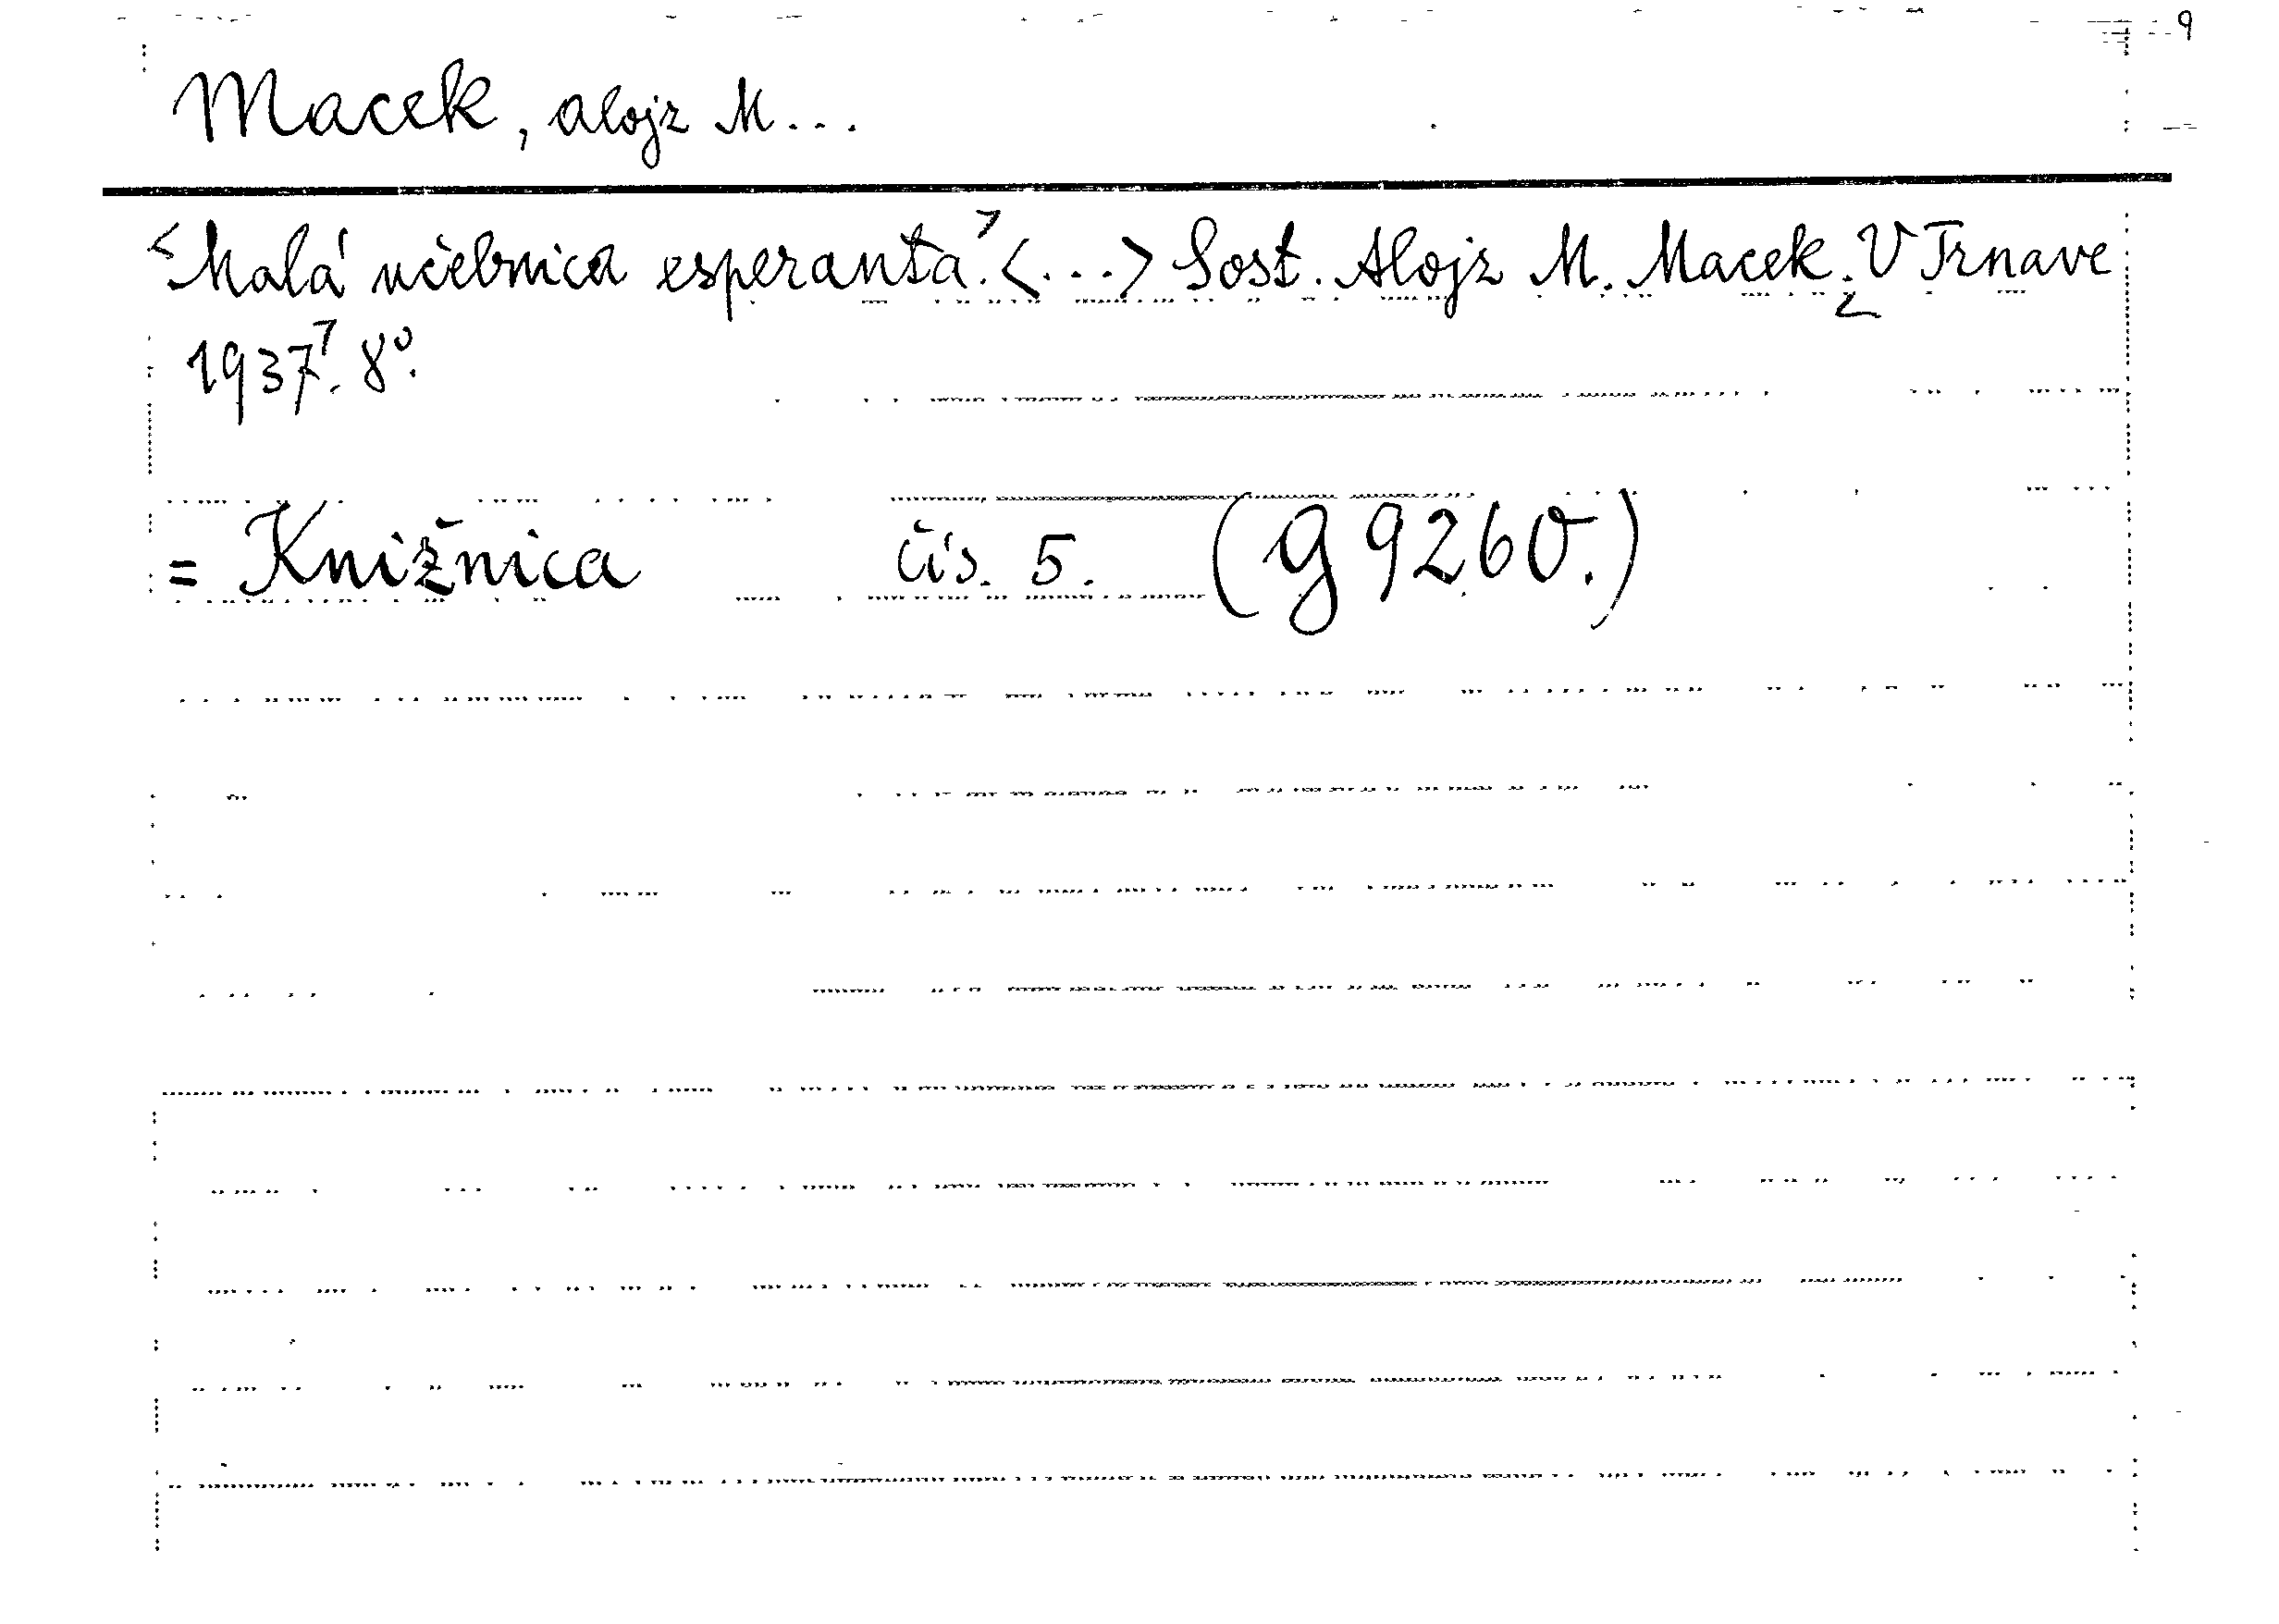 9
Macek, Alojz M...
<Malá učebnica esperanta.> <...> Sost. Alojz M. Macek. <V Trnave
1937>. 8°.
= Knižnica čís. 5. (g 9260.)